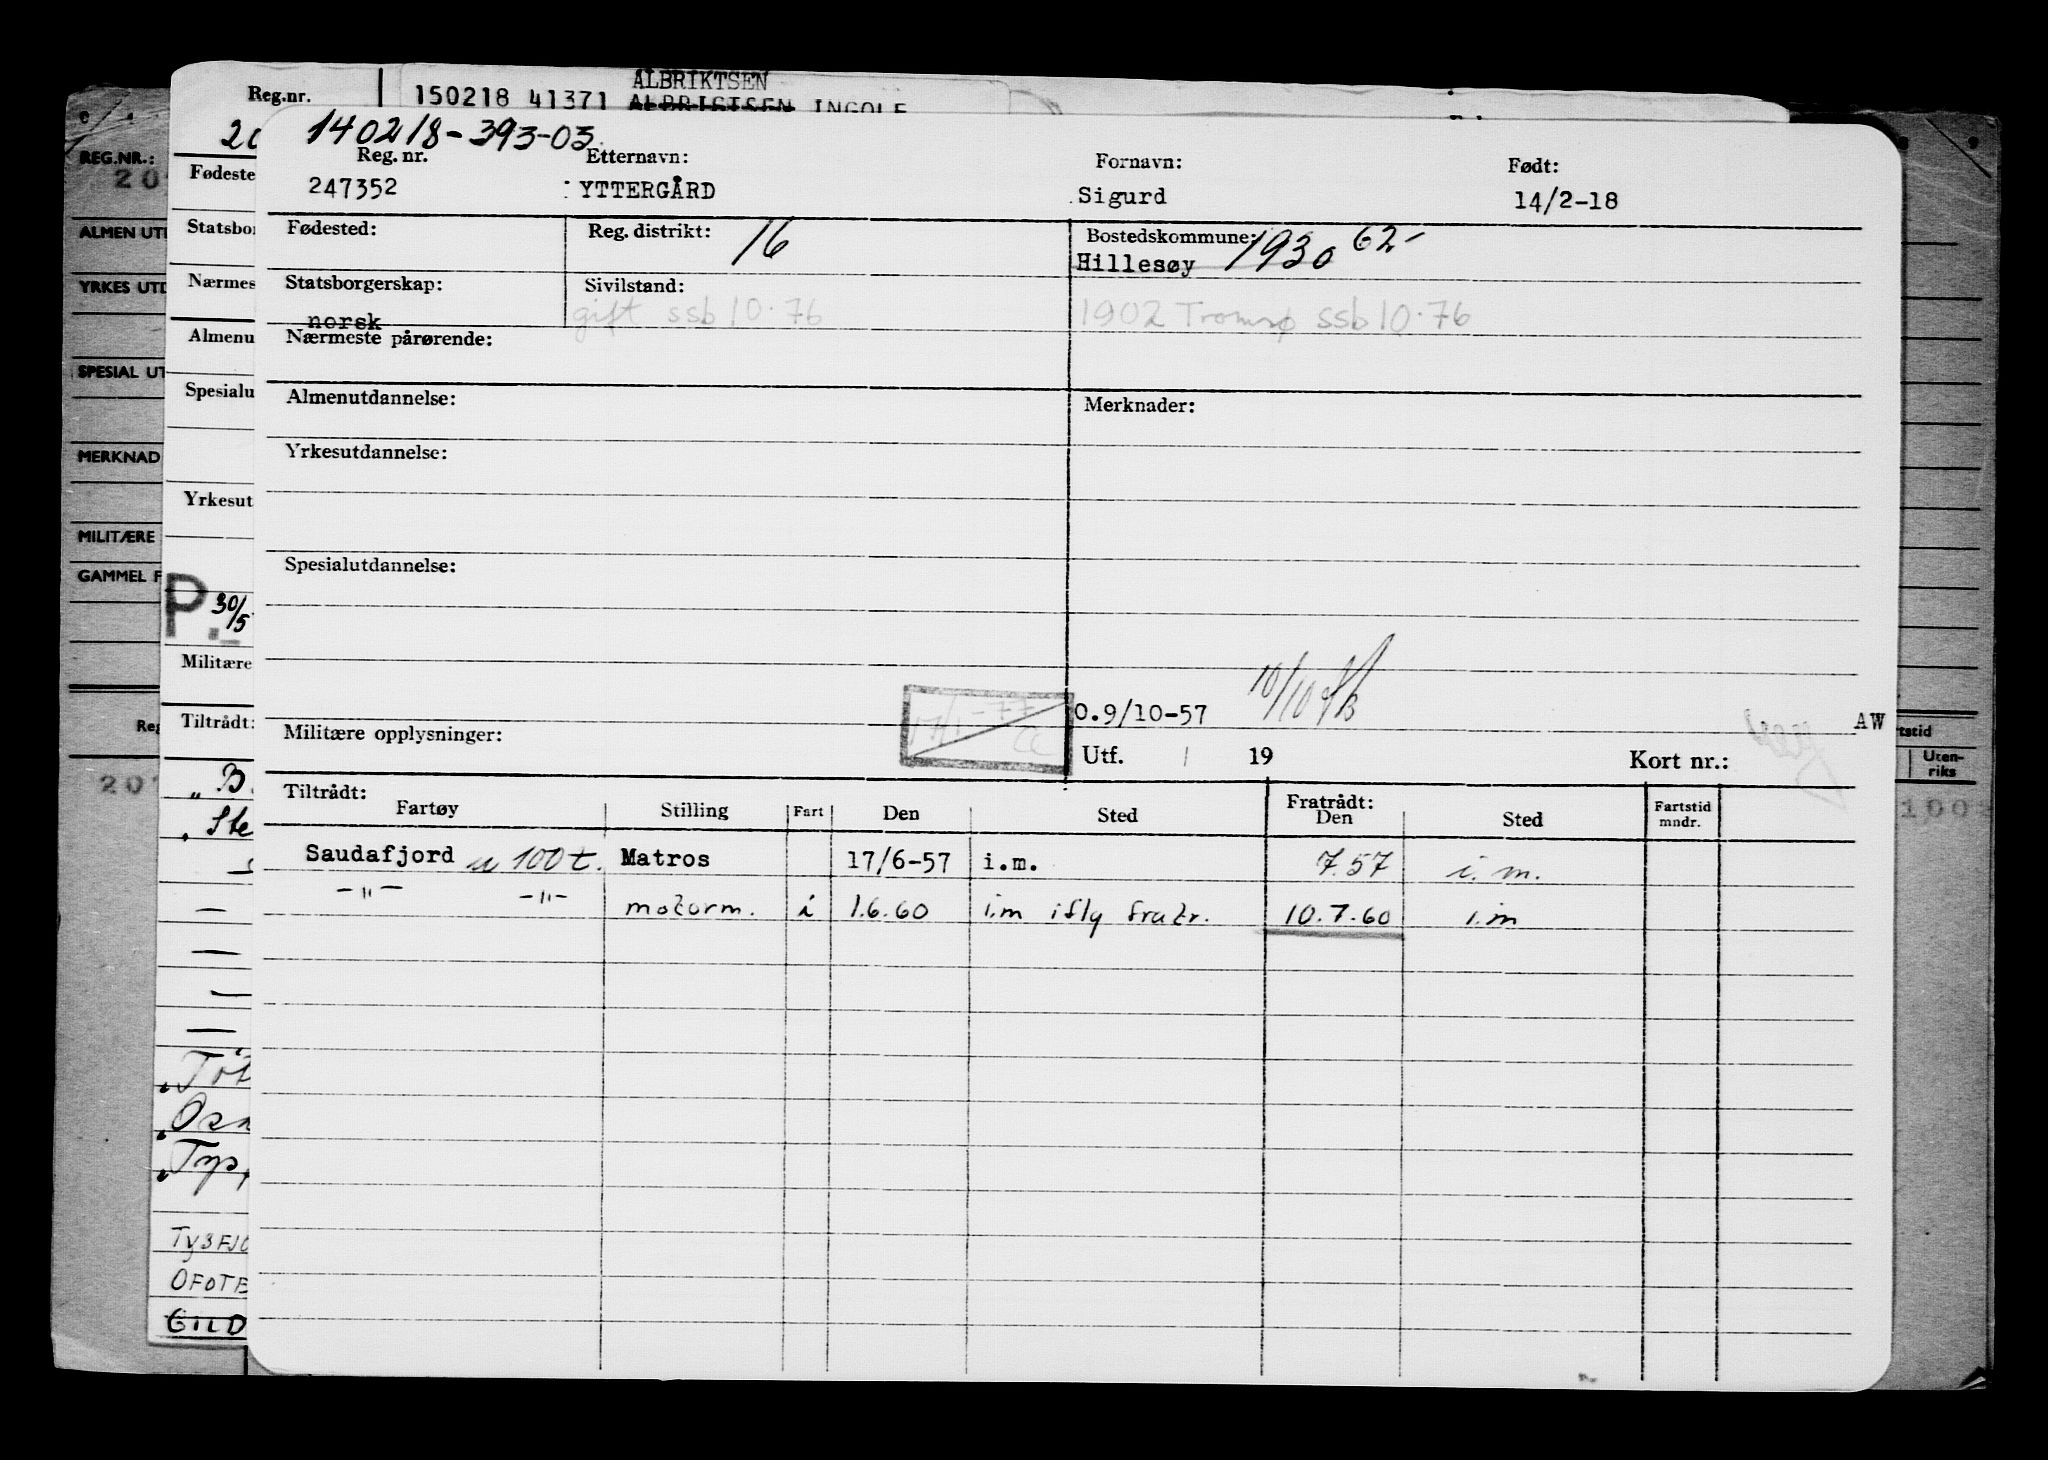 ALBRIKTSEN
Reg.nr. 150218 41371 ALBRIGTSEN INGOLF
140218-393-03
Reg. nr. Etternavn: Fornavn: Født:
247352 YTTERGÅRD Sigurd 14/2-18
Fødested: Reg. distrikt: 16 Bostedskommune: 1930 62-
Hillesøy
Statsborgerskap: Sivilstand:
norsk gift ssb 10.76 1902 Tromsø ssb 10.76
Nærmeste pårørende:
Almenutdannelse: Merknader:
Yrkesutdannelse:
Spesialutdannelse:
O.9/10-57 10/10 AW
Militære opplysninger: Utf. 19 Kort nr.:
Tiltrådt: Fratrådt:
Fartøy Stilling Fart Den Sted Den Sted Fartstid mndr.
Saudafjord u 100 t. Matros 17/6-57 i.m. 7.57 i.m.
-"- -"- motorm. i 1.6.60 i.m iflg fratr. 10.7.60 i.m
REG.NR.:
20
ALMEN UT
YRKES UTD
SPESIAL UT
MERKNAD
MILITÆRE
GAMMEL F
Reg
20
20
Fødeste
Statsbor
Nærmes
Almenu
Spesialu
Yrkesut
P. 30/5
Militære
Tiltrådt:
" B
" Ste
" Tot
" Osa
" Typ
TYSFJO
OFOTE
GILD
rtstid
Uten-
riks